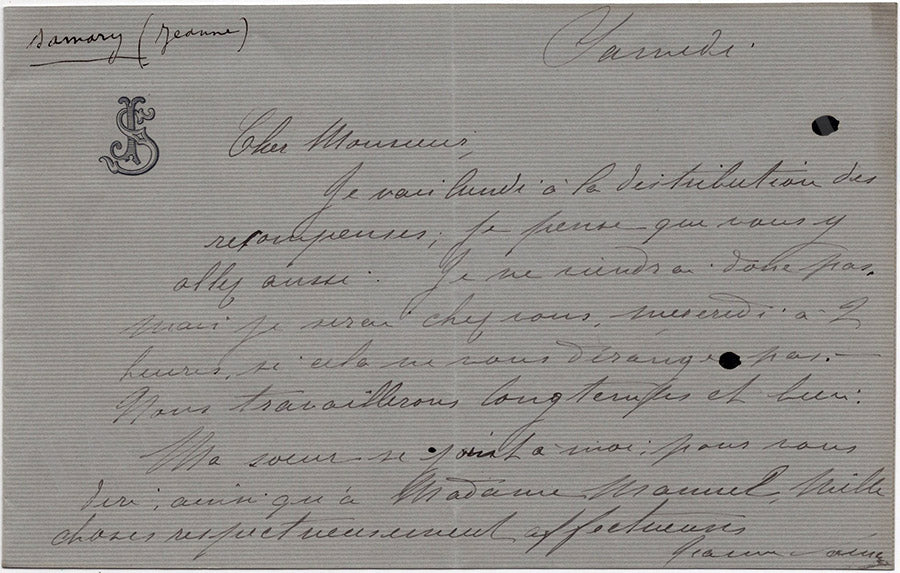 Samary (Jeanne)
Samedi.
JS
Cher Monsieur,
Je vais lundi à la distribution des
recompenses; je pense que vous y
allez aussi. Je ne viendrai donc pas,
mais je serai chez vous, mecredi à 2
heures, si cela ne vous dérange pas.—
Nous travaillerons longtemps et bien.
Ma soeur se joint à moi, pour vous
dire, ainsi qu'à Madame Manuel, mille
choses respectueusement affectueuses
Jeanne Samary